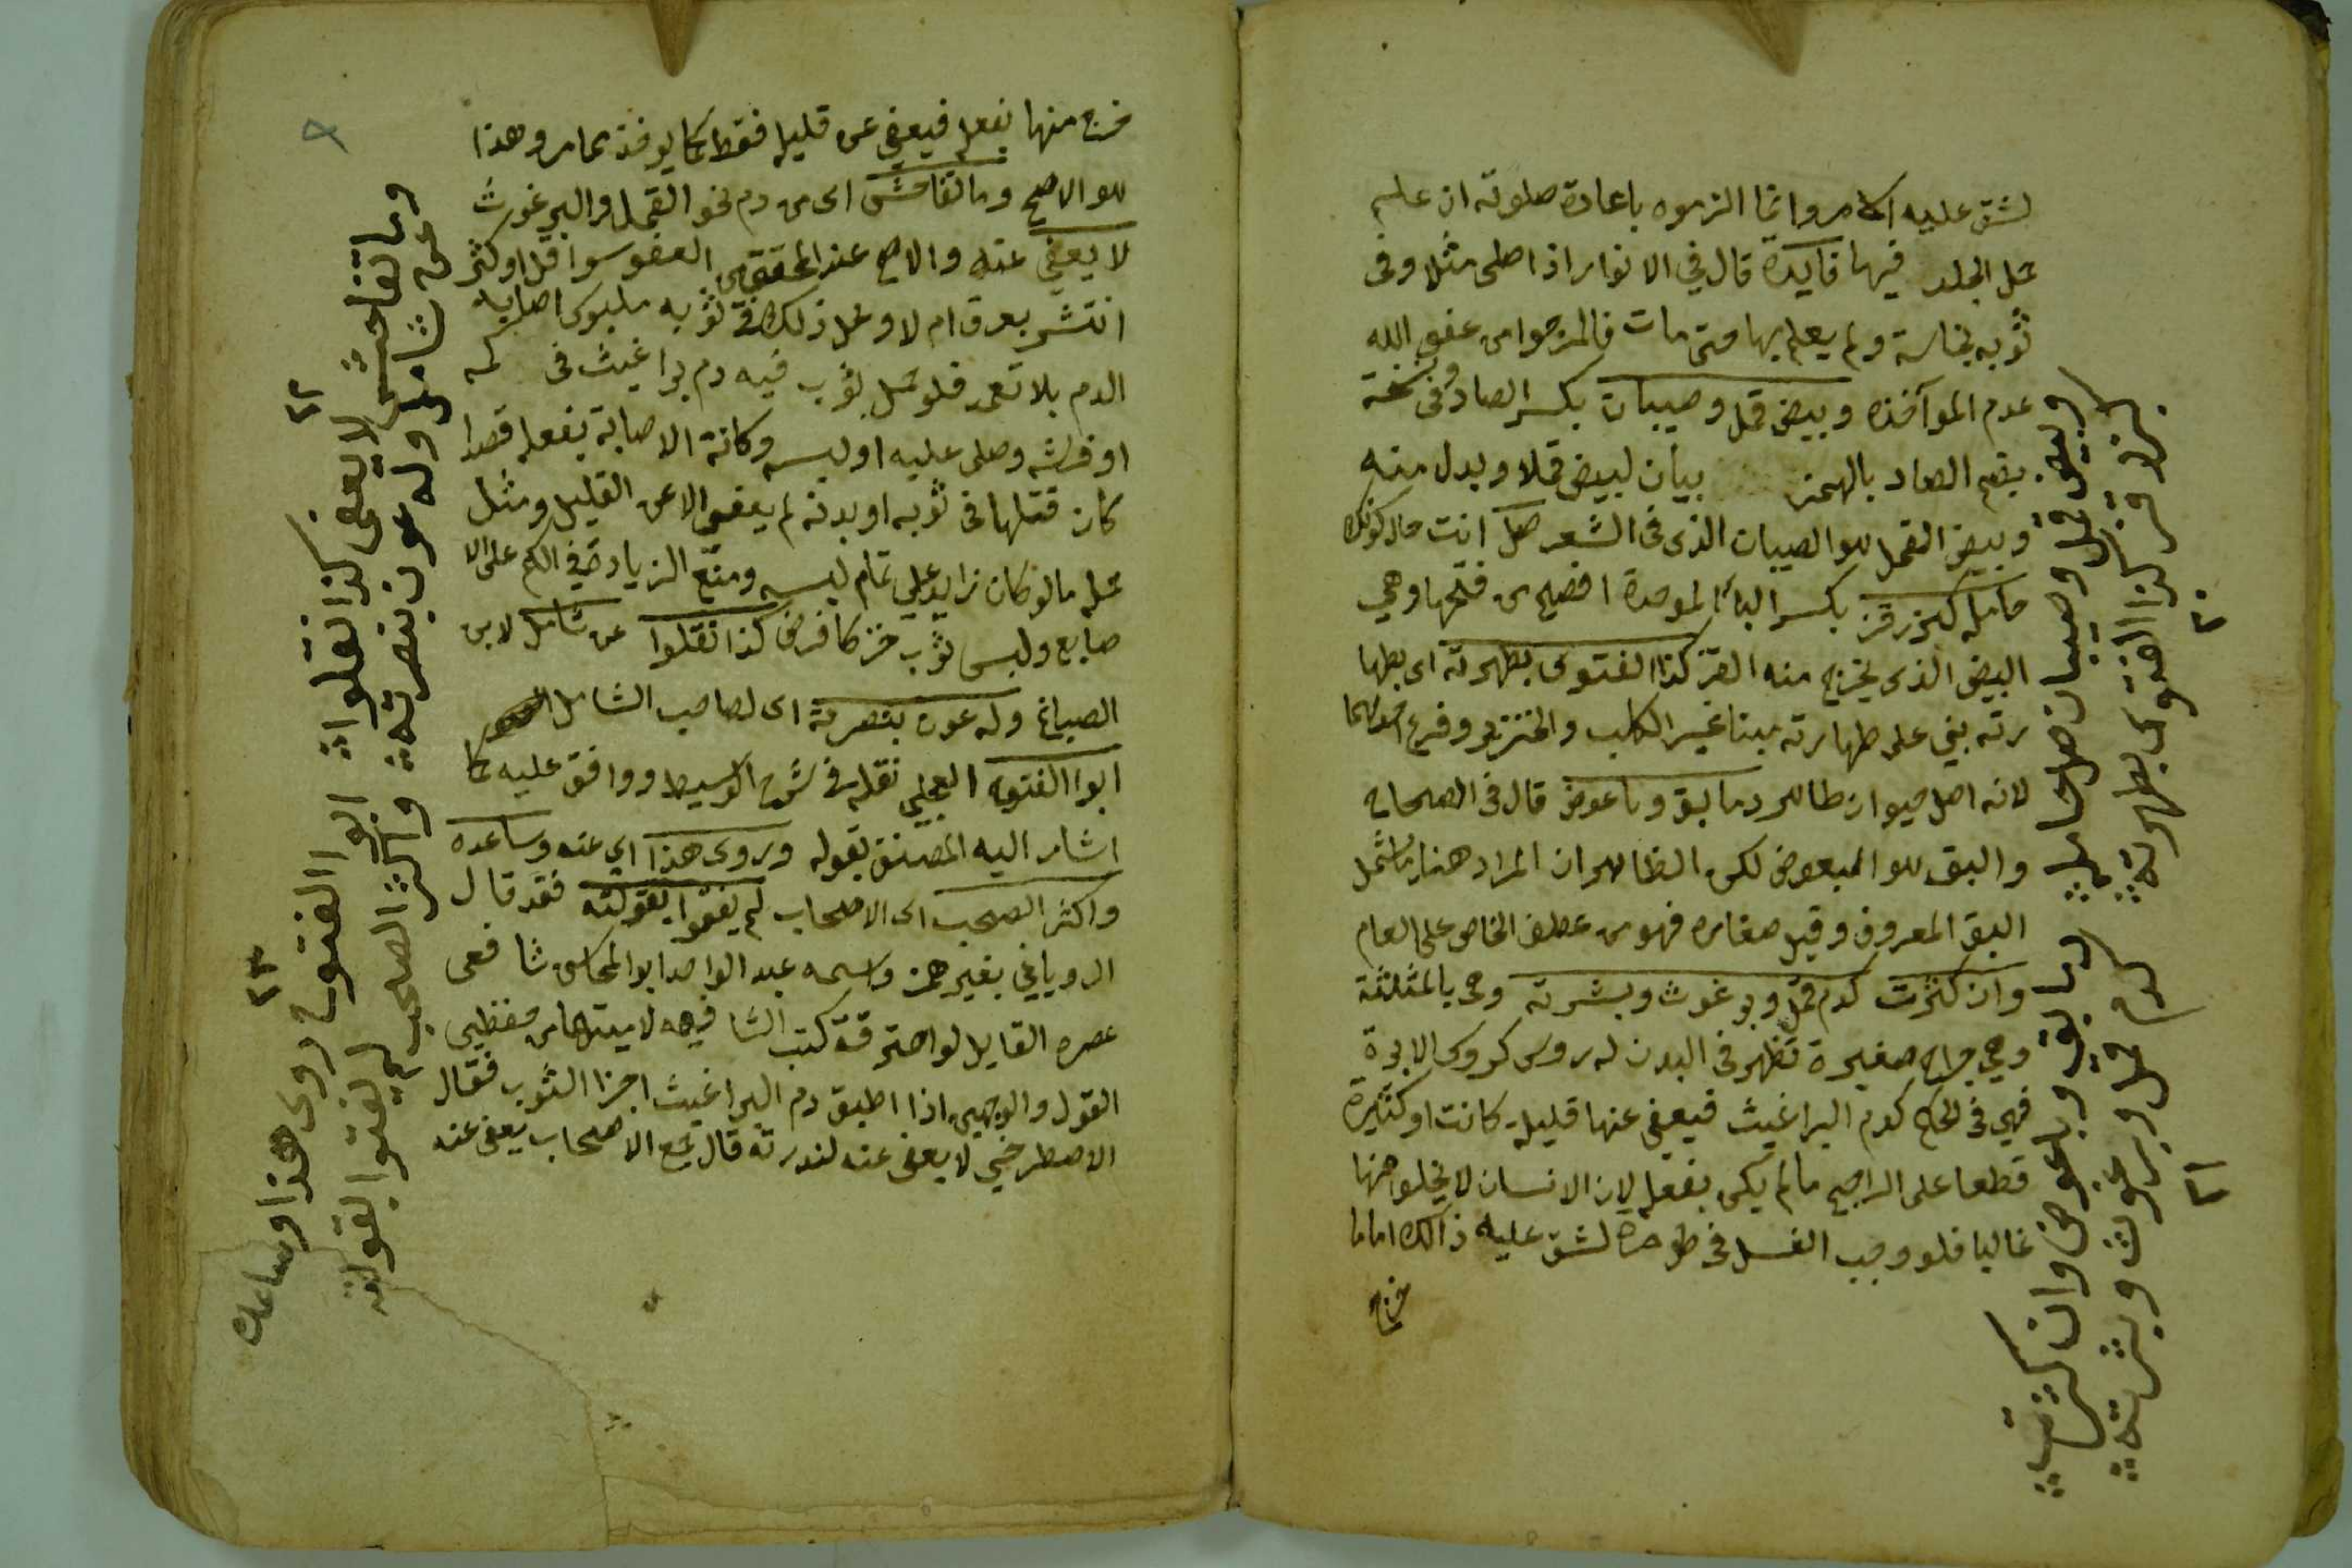 لشق عليه الامر وانما الزموه باعادة صلوته ان علم
محل الجلد فيها فايدة قال في الانوار اذا صلى مثلا وفى
ثوبه نجاسة ولم يعلم بها متى مات فالمرجوا من عفو الله
عدم المواخذه وبيض قمل وصيبان بكسر الصاد وفى نسخة
بضم الصاد بالهمز بيان لبيض قملا وبدل منه
وبيض القمل هو الصيبان الذى فى الشعر صل انت حال كونك
حامله كبزرقز بكسر البا الموحدة افصح من فتحها وهي
البيض الذى يخرج منه القز كذا الفتوى بطهرته اى بطها
رته بني على طهارته ميتا غير الكلب والخنزير وفرع
لانه اصل حيوان طاهر دما بق وباعوض قال فى الصحاح
والبق هو البعوض لكن الظاهر ان المراد هنا ما يشمل
البق المعروف وقيل صغاره فهو من عطف الخاص على العام
وان كثرت كدم قمل وبرغوث وبشرته وهى بالمثلثة
وهي جراح صغيرة تظهر فى البدن له روس كروس الابرة
فهي فى الحكم كدم البراغيث فيعفى عنها قليلة كانت او كثيرة
قطعا على الراجح ما لم يكن بفعله لان الانسان لا يخلو منها
غالبا فلو وجب الغسل فى كل مرة لشق عليه ذالك اما ما
خرج
وبيض قمل وصيبان صل حامله دما بق وباعوض وان كثرت
كبزر قز كذا الفتوى بطهرته كدم قمل وبرغوث وبشرته
٢٠
٢١
خرج منها بفعله فيعفى عن قليله فقط كما يوخذ مما مر وهذا
هو الاصح وما تفاحش اى من دم نحو القمل والبرغوث
لا يعفى عنه والاصح عند المحققين العفو سوا قل او كثر
انتشر بعرق ام لا ومحل ذلك فى ثوبه ملبوس اصابه
الدم بلا تعمد فلو حمل ثوب فيه دم براغيث فى كمه
او فرشه وصلى عليه او لبسه وكانة الاصابة بفعله قصدا
كان قتلها فى ثوبه او بدنه لم يعفى الا عن القليل ومثل
حمله مالو كان زايد على تمام لبسه ومنع الزيادة فى الكم على الا
صابع ولبس ثوب خز كما فرض كذا نقلوا عن شامل لابن
الصباغ وله عون بنصرته اى لصاحب الشامل
ابوا الفتوح العجلي نقله فى شرح الوسيط ووافق عليه كما
اشار اليه المصنف بقوله وروى هذا اي عنه وساعده
واكثر الصحب اى الاصحاب لم يفتوا بقولته فقد قال
الرويانى بغير همز واسمه عبد الواحد ابو المحاسن شافعى
عصره القايل لو احترقة كتب الشافعي لامليتها من حفظي
القول والوجهين اذا اطبق دم البراغيث اجزا الثوب فقال
الاصطرخي لا يعفى عنه لندرته قال جمع الاصحاب يعفى عنه
وما تفاحش لا يعفى كذا نقلوا ابوا الفتوح روى هذا وساعده
عن شامل وله عون بنصرته واكثر الصحب لم يفتوا بقولته
٢٢
٢٣